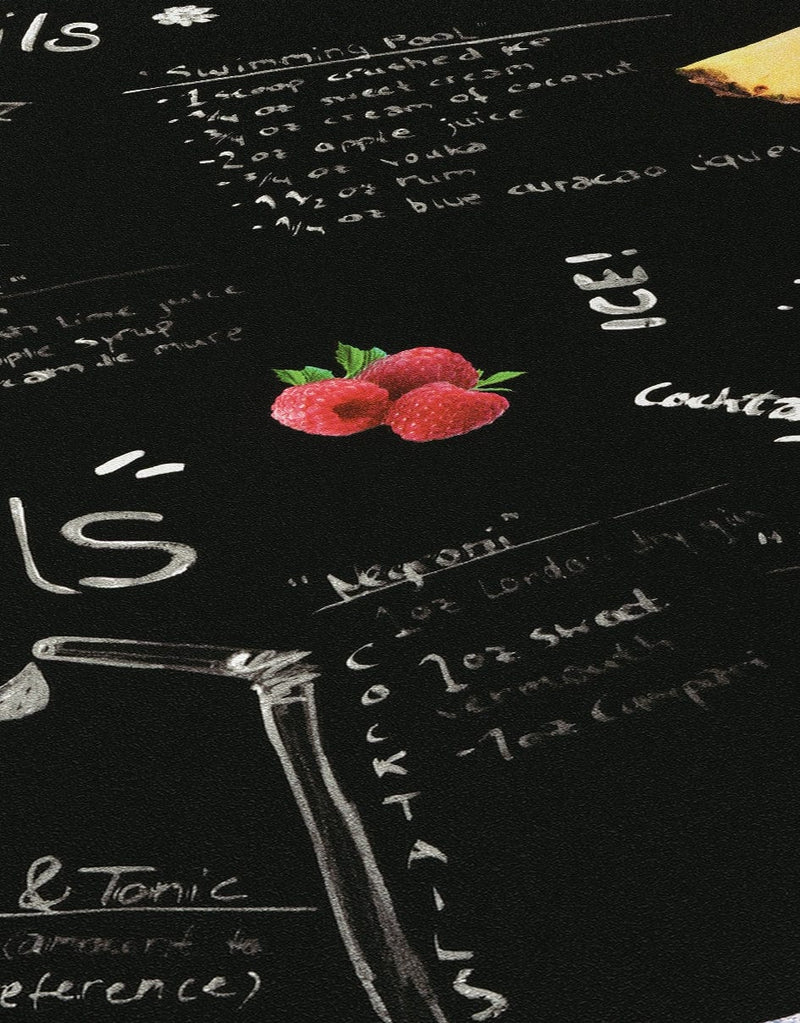 ils
"Swimming Pool"
- 1 scoop crushed ice
- 3/4 oz sweet cream
- 3/4 oz cream of coconut
- 2 oz apple juice
- 3/4 oz vodka
- 1 1/2 oz rum
- 1/4 oz blue curacao liqueu
lime juice
ple syrup
de mure
ICE!
Cockta
ls
"Negroni"
- 1oz London dry gin
- 1oz sweet
vermouth
- 1oz Campari
COCKTAILS
& Tonic
(ammount to
eference)